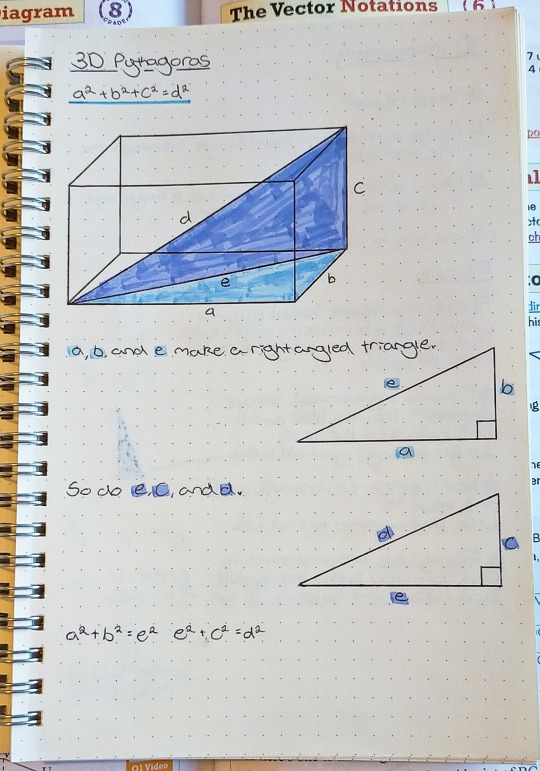 iagram
8
GRADE
The Vector Notations
(6)
3D Pythagoras
a² + b² + c² = d²
d
c
e
b
a
a, b, and e make a right angled triangle.
e
b
a
So do e, c, and d.
d
c
e
a² + b² = e² e² + c² = d²
01 Video